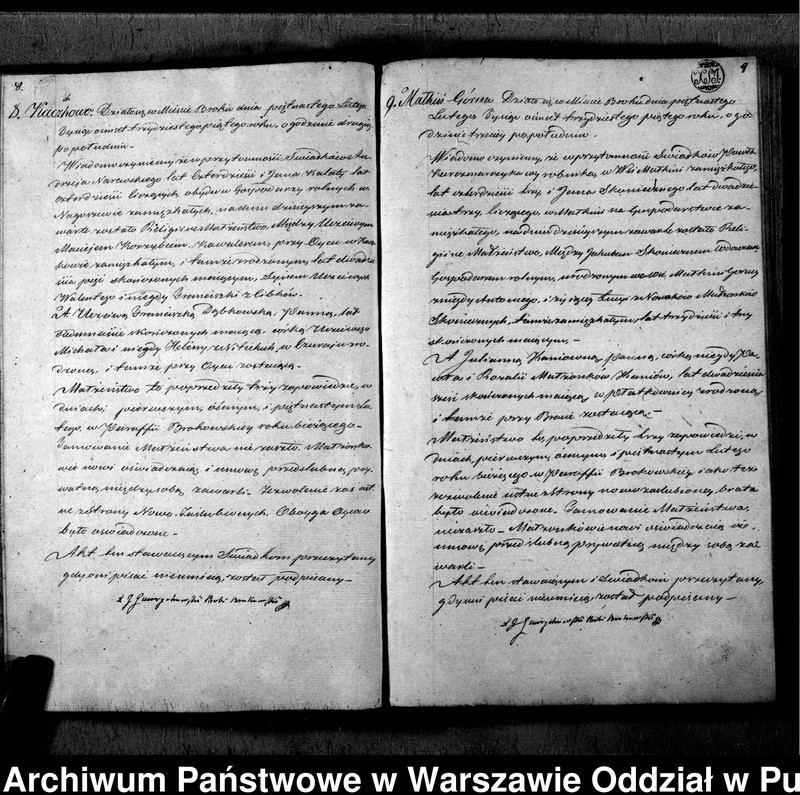 8.
8. Kaczkowo. Działo się w Mieście Broku dnia piętnastego Lutego
tysiąc ośmset trzydziestego piątego roku, o godzinie drugiej
po południu.
Wiadomo czyniemy, że w przytomności Świadków An-
drzeja Narewskiego lat czterdzieści i Jana Kalaty lat
czterdzieści liczących, obydwu Gospodarzy rolnych w
Nagoszewie zamieszkałych, na dniu dzisiejszym za-
warte zostało Religijne Małżeństwo, Między Uczciwym
Maciejem Korzybem, Kawalerem, przy Oycu w Kacz-
kowie zamieszkałym, i tamże urodzonym, lat dwadzie-
ścia pięć skończonych mającym, Synem Uczciwych
Walentego i niegdy Franciszki z Libków.
A Uczciwą Franciszką Dąbkowską, Panną, lat
siedmnaście skończonych mającą, córką Uczciwego
Michała i niegdy Heleny w Czuraju u-
rodzoną, i tamże przy Oycu zostającą.
Małżeństwo to poprzedziły trzy zapowiedzie, w
dniach pierwszym, ósmym, i piętnastym Lu-
tego, w Paraffii Brokowskiey roku bieżącego.
Tamowanie Małżeństwa nie zaszło. Małżonko-
wie nowi oświadczają, iż umowę przedślubną pry-
watną między sobą zawarli. Zezwolenie zaś ust-
ne z strony Nowo-Zaślubionych Oboyga Oyców
było oświadczone.
Akt ten stawaiącym i Świadkom przeczytany,
gdy oni pisać nieumieją, został podpisany—
9
9. Małkiń Górna Działo się w Mieście Broku dnia piętnastego
Lutego tysiąc ośmset trzydziestego piątego roku, o go-
dzinie trzeciey po południu.
Wiadomo czyniemy, że w przytomności Świadków Pawła
Kaczmarczyka wyrobnika, w Wsi Małkini zamieszkałego,
lat czterdzieści trzy, i Jana Skoniecznego lat dwadzie-
ścia trzy, liczącego, w Małkini na Gospodarstwie za-
mieszkałego, na dniu dzisieyszym zawarte zostało Reli-
gijne Małżeństwo, Między Jakubem Skoniecznem Wdowcem,
Gospodarzem rolnym, urodzonym we wsi Małkini Górney
z niegdy Antoniego, i żyjącey Łucyi z Nowaków Małżonków
Skoniecznych, tamże zamieszkałym, lat trzydzieści i trzy
skończonych mającym,—
A Julianną Kaniowną, Panną, córką niegdy Pa-
wła i Rozalii Małżonków Kaniów, lat dwadzieścia
sześć skończonych mającą, w Płatkownicy zrodzoną,
i tamże przy Bracie zostającą—
Małżeństwo to poprzedziły trzy zapowiedzi, w
dniach, pierwszym, ósmym i piętnastym Lutego
roku bieżącego, w Paraffii Brokowskiey, i jako też
zezwolenie ustne z strony nowozaślubioney brata
było oświadczone. Tamowanie Małżeństwa,
nie zaszło— Małżonkowie nowi oświadczają, iż
umowę przedślubną prywatną między sobą za-
warli—
Akt ten stawaiącym i Świadkom przeczytany,
gdy oni pisać nieumieją, został podpisany—
Archiwum Państwowe w Warszawie Oddział w Pu